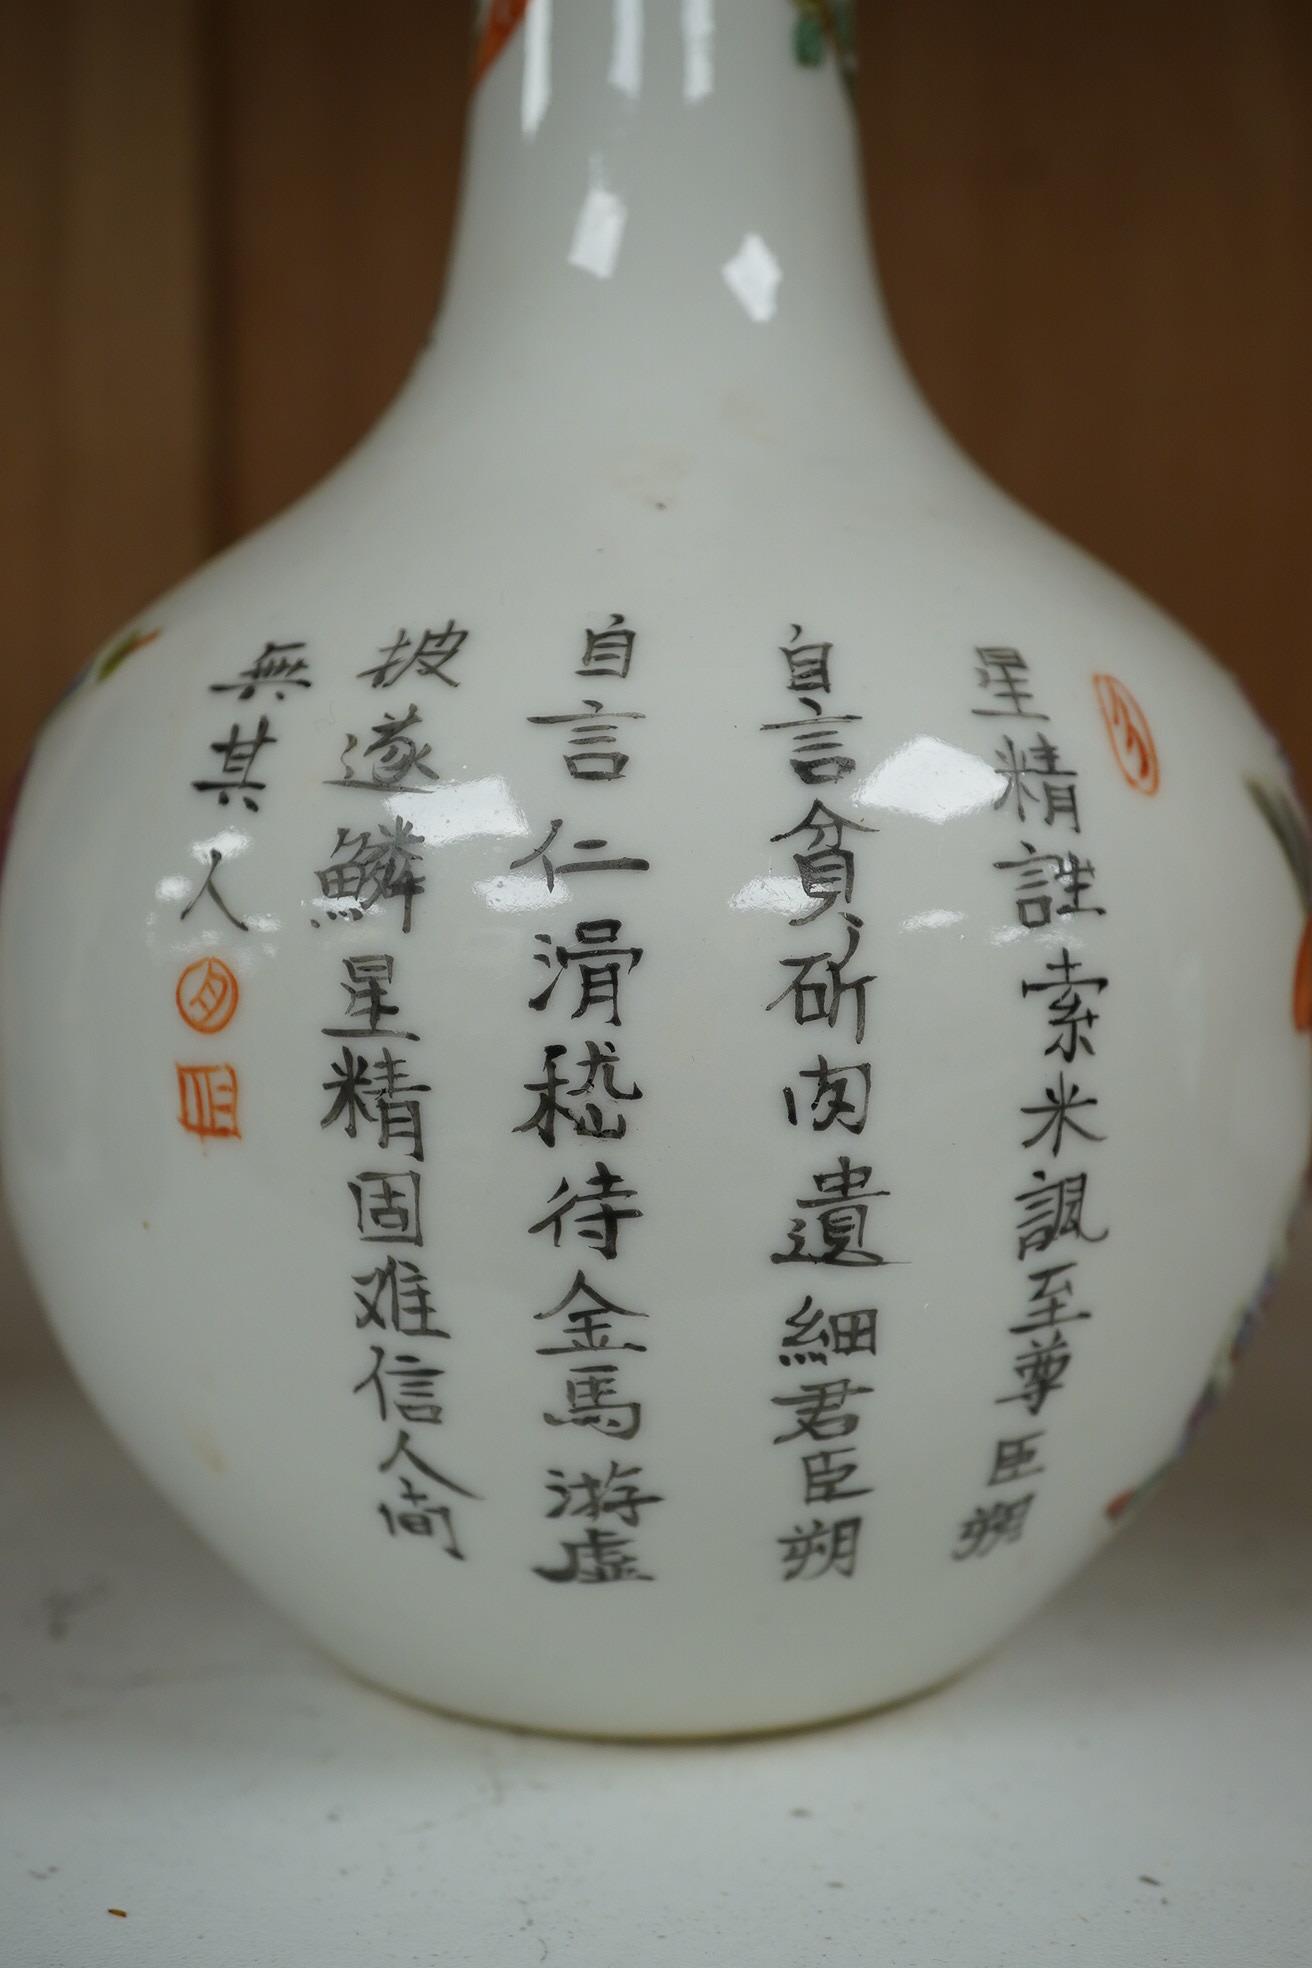 星精誰索米諷至尊臣朔
自言貧斫肉遺細君臣朔
自言仁滑稽待金馬游虛
披遂鱗星精固难信人间
無其人